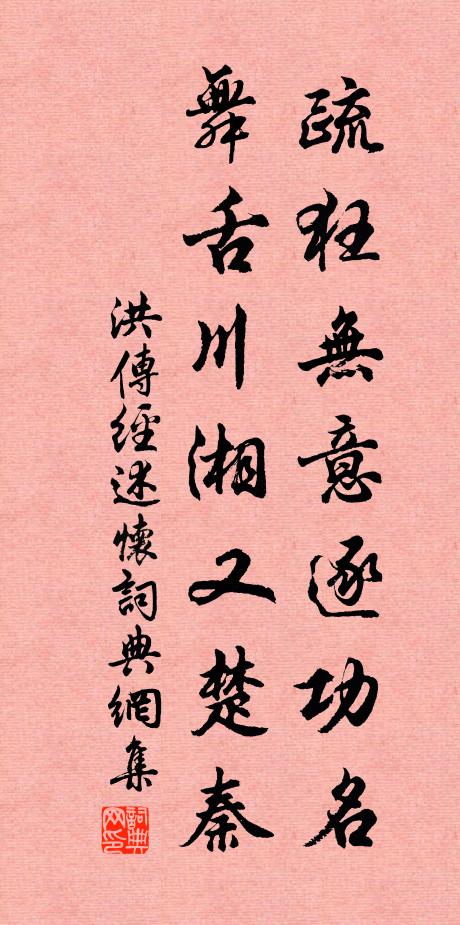 疏狂無意逐功名
舞舌川湘又楚秦
洪傳經述懷詞典網集
詞典网印